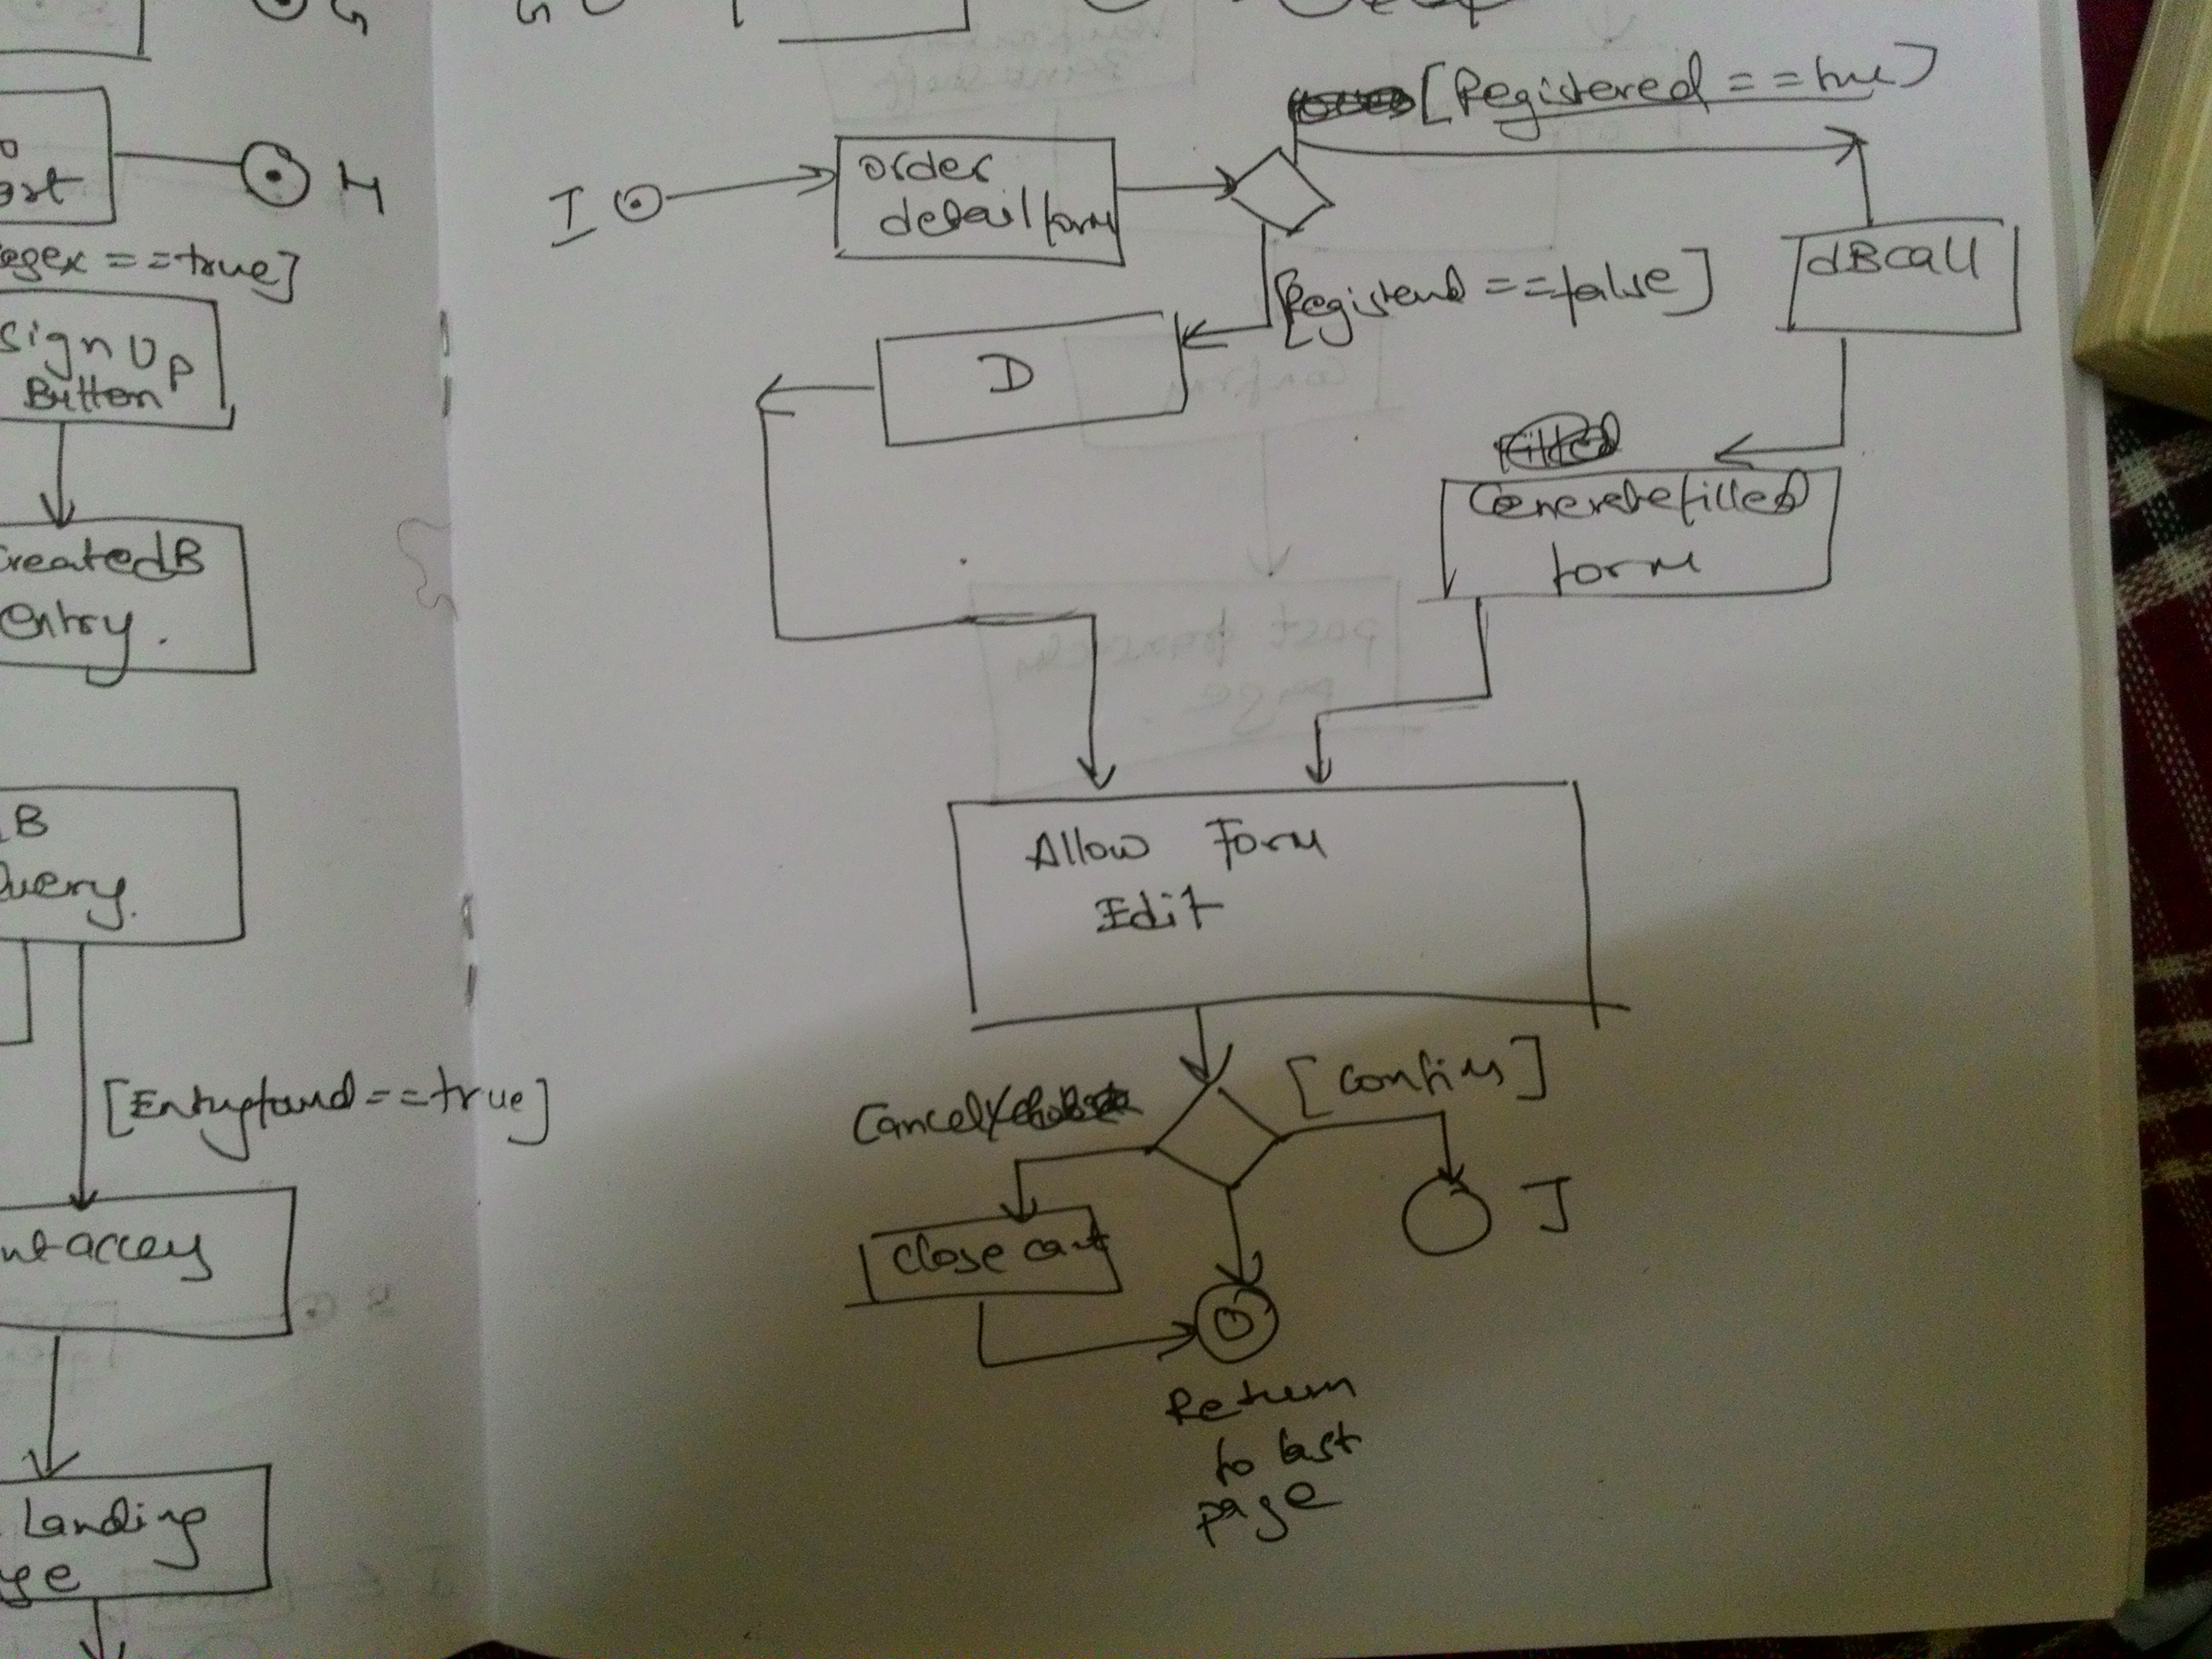 H
egex ==true]
Sign Up
Button
CreatedB
Entry.
B
Query.
[Entryfound==true]
Landing
ge
[Registered ==true]
I
order
detail form
[Registered ==false]
dBcall
D
Generate filled
form
Allow Form
Edit
Cancel
[Confirm]
Close cart
J
Return
to last
page